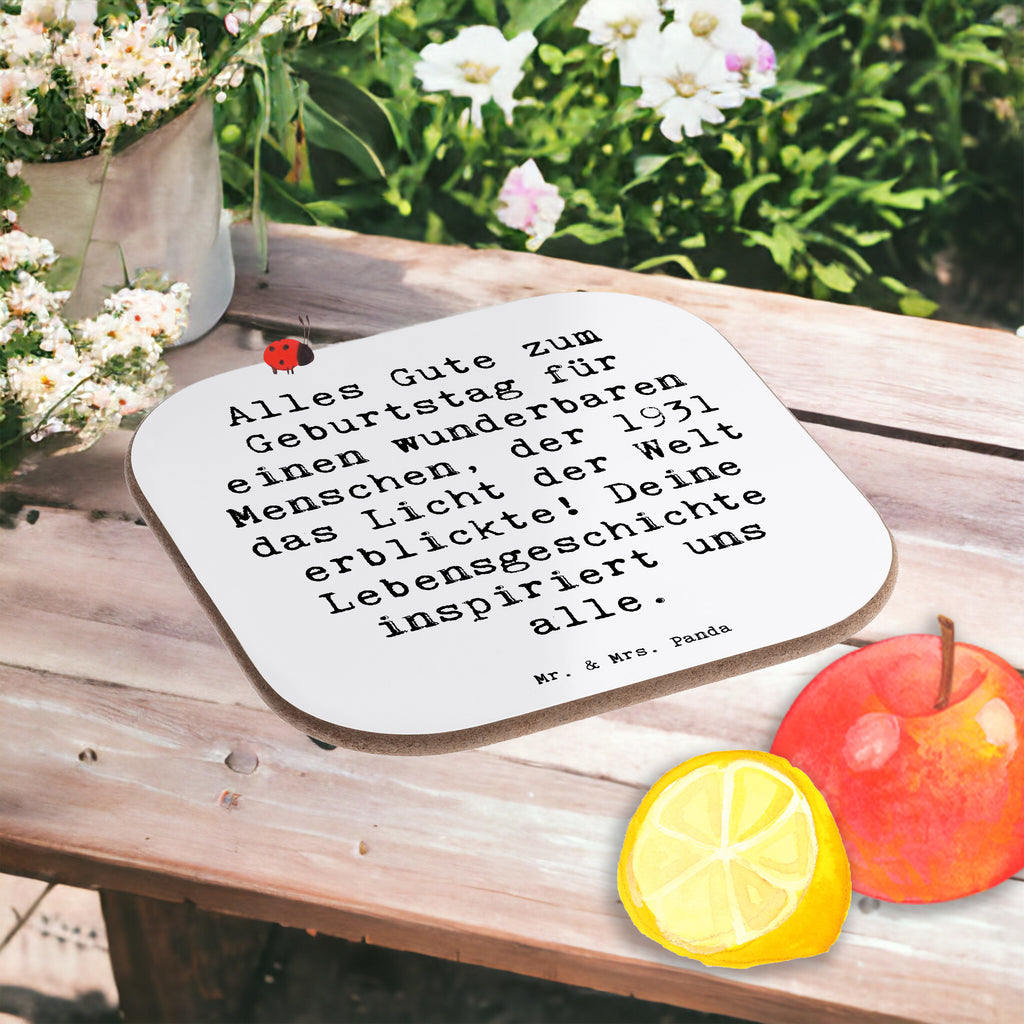 Alles Gute zum
Geburtstag für
einen wunderbaren
Menschen, der 1931
das Licht der Welt
erblickte! Deine
Lebensgeschichte
inspiriert uns
alle.
Mr. & Mrs. Panda